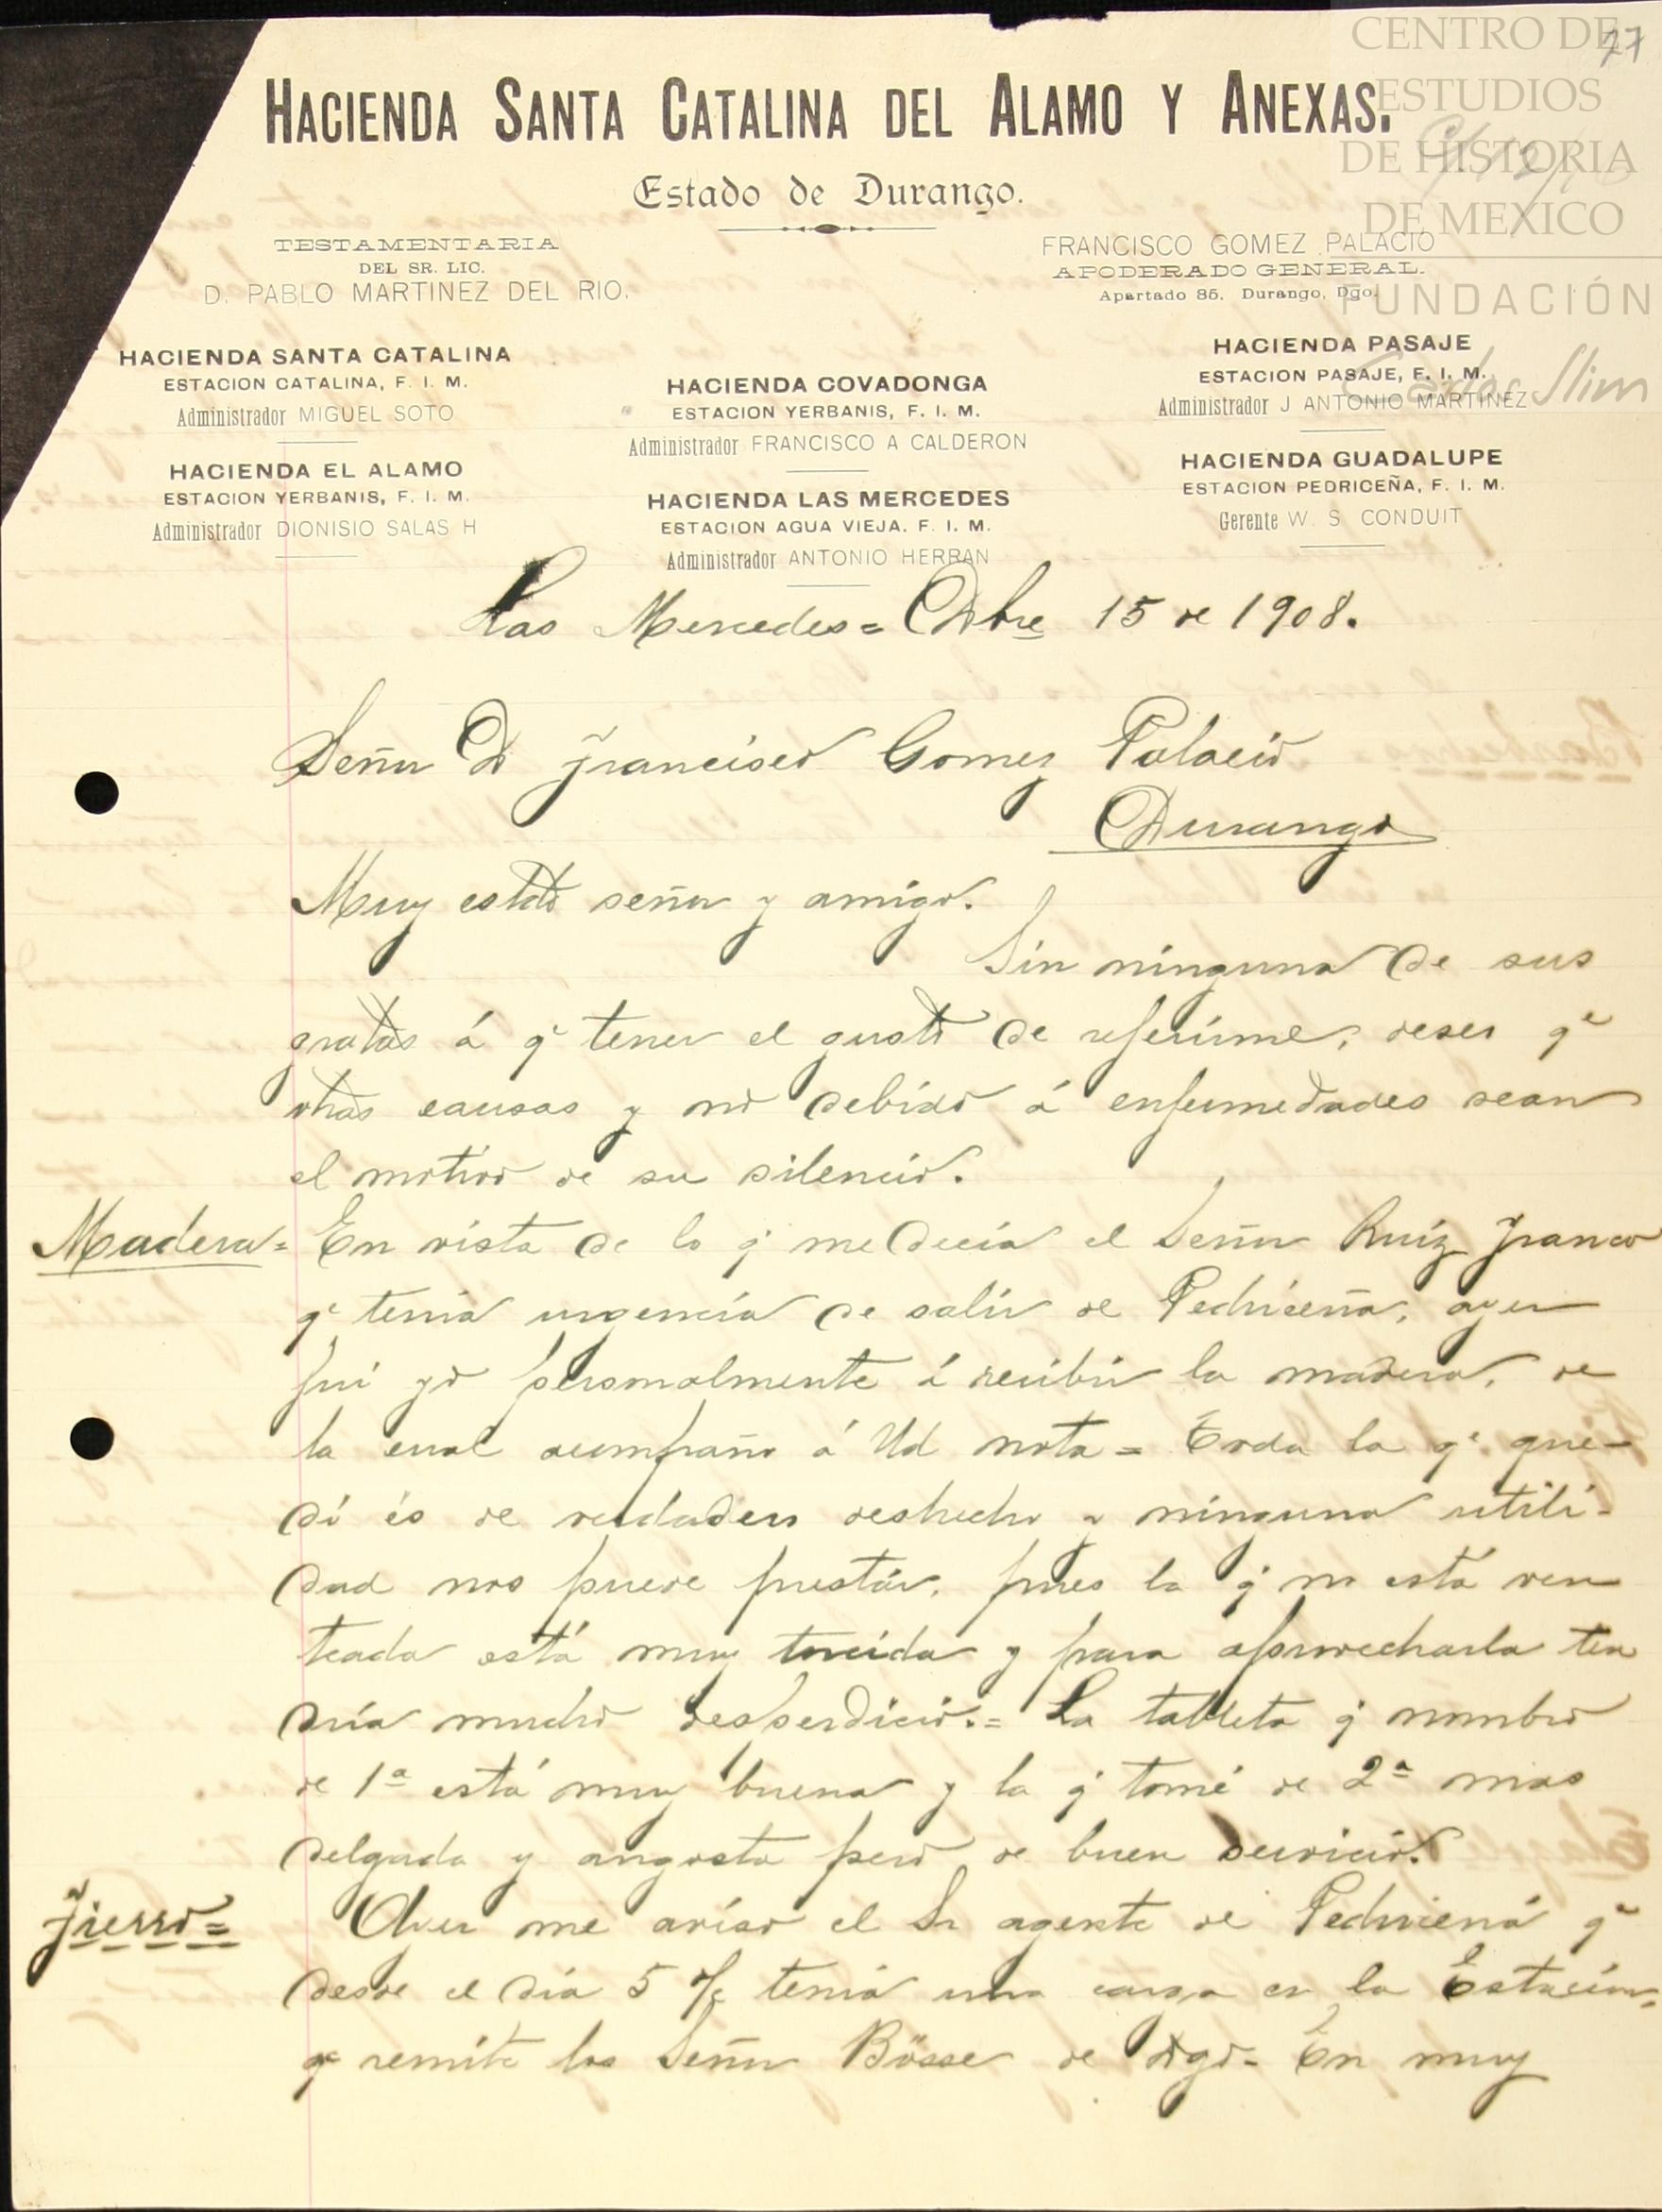 77
CENTRO DE
ESTUDIOS
DE HISTORIA
DE MEXICO
FUNDACIÓN
Carlos Slim
HACIENDA SANTA CATALINA DEL ALAMO Y ANEXAS.
Estado de Durango.
TESTAMENTARIA
DEL SR. LIC.
D. PABLO MARTINEZ DEL RIO.
FRANCISCO GOMEZ PALACIO
APODERADO GENERAL.
Apartado 85. Durango, Dgo.
HACIENDA SANTA CATALINA
ESTACION CATALINA, F. I. M.
Administrador MIGUEL SOTO
HACIENDA EL ALAMO
ESTACION YERBANIS, F. I. M.
Administrador DIONISIO SALAS H
HACIENDA COVADONGA
ESTACION YERBANIS, F. I. M.
Administrador FRANCISCO A CALDERON
HACIENDA LAS MERCEDES
ESTACION AGUA VIEJA. F. I. M.
Administrador ANTONIO HERRAN
HACIENDA PASAJE
ESTACION PASAJE, F. I. M.
Administrador J ANTONIO MARTINEZ
HACIENDA GUADALUPE
ESTACION PEDRICEÑA, F. I. M.
Gerente W. S. CONDUIT
Las Mercedes = Dbre 15 de 1908.
Señor Dn Francisco Gomez Palacio
Durango
Muy estdo señor y amigo.
Sin ninguna de sus
gratas á qe tener el gusto de referirme, deseo qe
otras causas y no debido á enfermedades sean
el motivo de su silencio.
Madera = En vista de lo q. me decia el Señor Ruiz Franco
qe tenia urgencia de salir de Pedriceña, ayer
fui yo personalmente á recibir la madera, de
la cual acompaño á Ud nota = Toda la qe que-
dó és de verdadero deshecho y ninguna utili-
dad nos puede prestár, pues la q. no está ven
teada está muy torcida y para aprovecharla ten
dría mucho desperdicio. = La tableta q. nombro
de 1ª está muy buena y la q. tomé de 2ª mas
delgada y angosta pero de buen servicio.
Fierro = Ayer me avisó el Sr agente de Pedriceña qe
desde el dia 5 %c tenia una carga en la Estación,
qe remite los Señor Bösse de Dgo. En muy